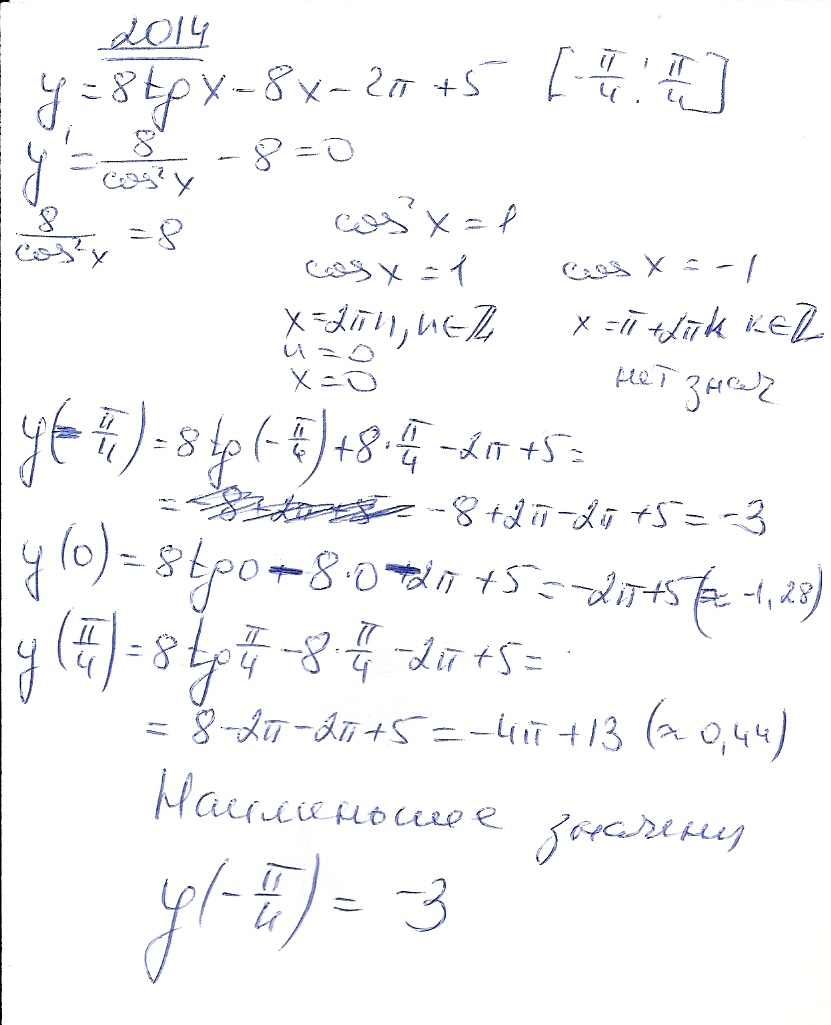 2014
y = 8tgx - 8x - 2π + 5 [-π/4; π/4]
y' = 8/cos²x - 8 = 0
8/cos²x = 8 cos²x = 1
cosx = 1 cosx = -1
x = 2πn, n∈ℤ x = π + 2πk k∈ℤ
n = 0
x = 0 нет знач
y(-π/4) = 8tg(-π/4) + 8·π/4 - 2π + 5 =
= -8 + 2π - 2π + 5 = -3
y(0) = 8tg0 - 8·0 - 2π + 5 = -2π + 5 (≈ -1,28)
y(π/4) = 8tgπ/4 - 8·π/4 - 2π + 5 =
= 8 - 2π - 2π + 5 = -4π + 13 (≈ 0,44)
Наименьшее значени
y(-π/4) = -3